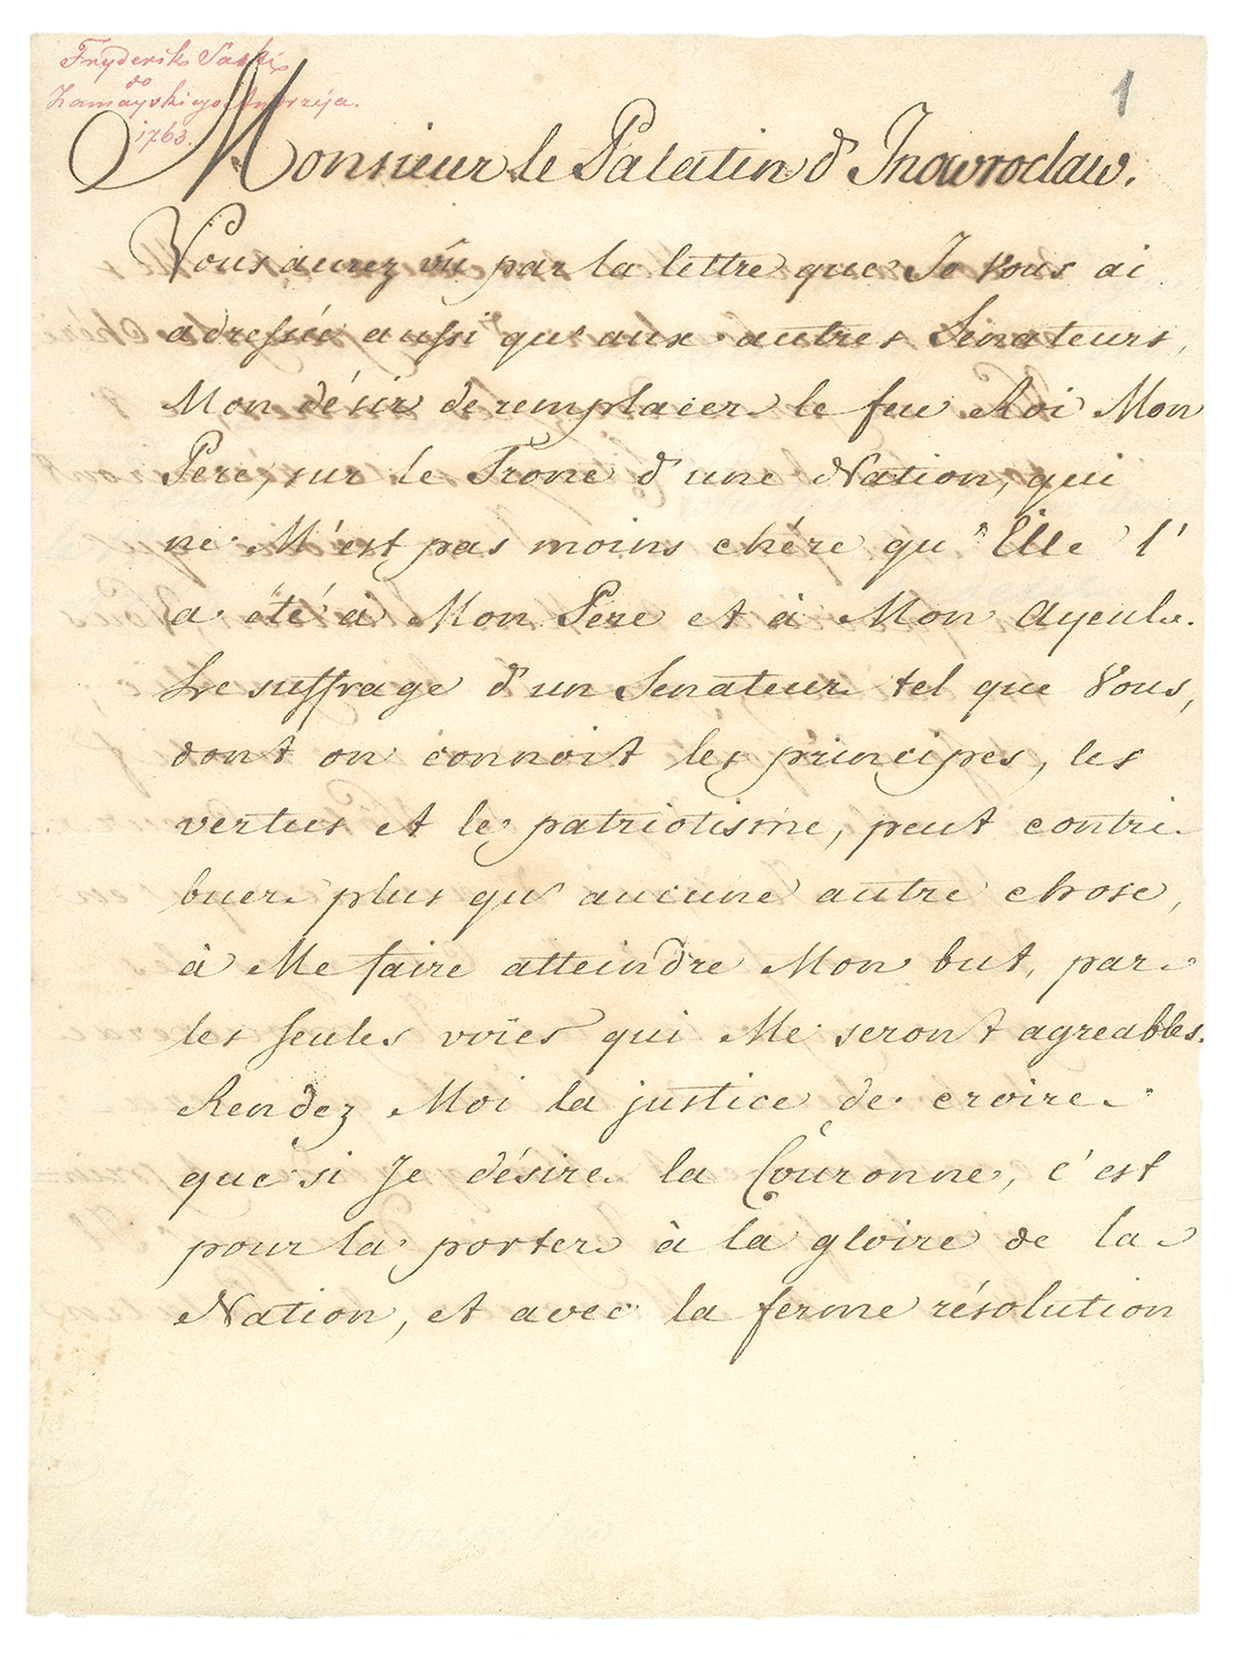 Fryderik Saski
do
Zamoyskiego Andrzeja.
1763.
1
Monsieur le Palatin d'Inowroclaw.
Vous aurez vû par la lettre que Je Vous ai
adressée aussi qu'aux autres Senateurs,
Mon désir de remplacer le feu Roi Mon
Pere, sur le Trone d'une Nation, qui
ne M'est pas moins chére qu'Elle l'
a été à Mon Pere et à Mon Ayeul.
Le suffrage d'un Senateur tel que Vous,
dont on connoit les principes, les
vertus et le patriotisme, peut contri-
buer plus qu'aucune autre chose,
à Me faire atteindre Mon but, par
les seules voïes qui Me seront agreables.
Rendez Moi la justice de croire
que si Je désire la Couronne, c'est
pour la porter à la gloire de la
Nation, et avec la ferme résolution